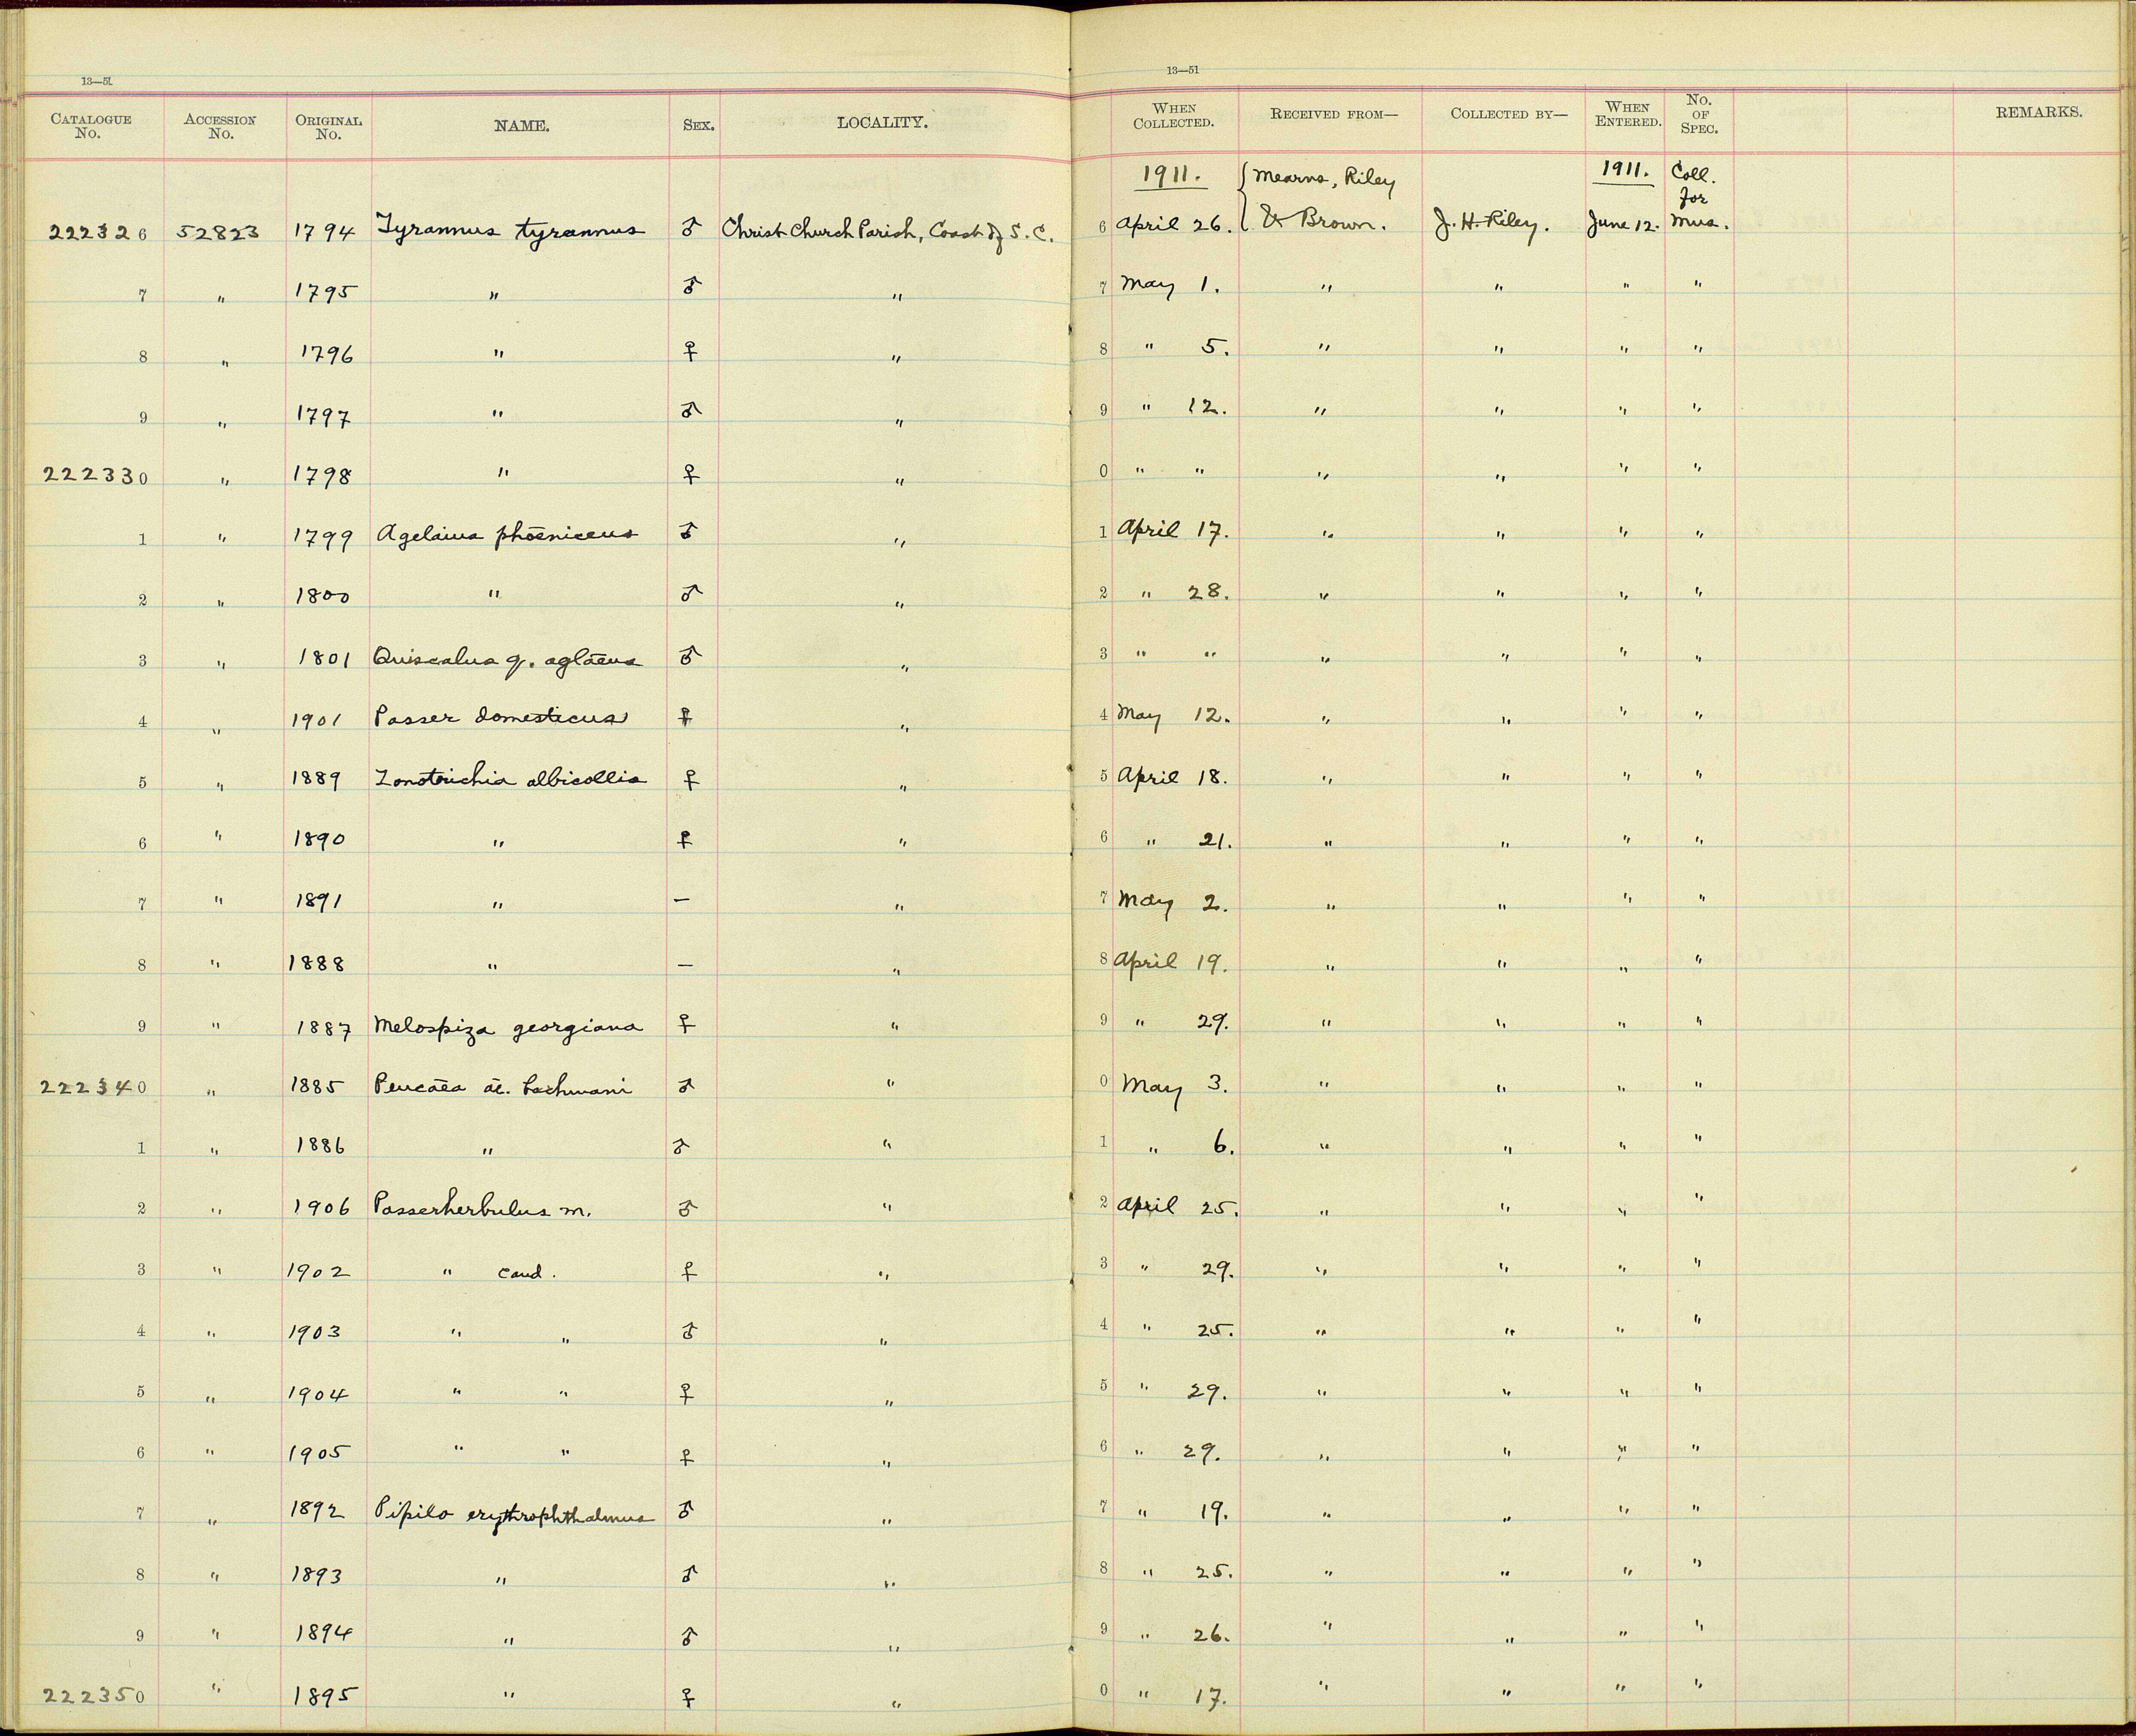 13—51 13—51
CATALOGUE No. ACCESSION No. ORIGINAL No. NAME. SEX. LOCALITY. WHEN COLLECTED. RECEIVED FROM— COLLECTED BY— WHEN ENTERED. No. OF SPEC. REMARKS.
1911. Mearns, Riley 1911. Coll. for
222326 52823 1794 Tyrannus tyrannus ♂ Christ Church Parish, Coast of S. C. 6 April 26. & Brown. J. H. Riley. June 12. Mus.
7 " 1795 " ♂ " 7 May 1. " " " "
8 " 1796 " ♀ " 8 " 5. " " " "
9 " 1797 " ♂ " 9 " 12. " " " "
222330 " 1798 " ♀ " 0 " " " " " "
1 " 1799 Agelaius phœniceus ♂ " 1 April 17. " " " "
2 " 1800 " ♂ " 2 " 28. " " " "
3 " 1801 Quiscalus q. aglæus ♂ " 3 " " " " " "
4 " 1901 Passer domesticus ♀ " 4 May 12. " " " "
5 " 1889 Zonotrichia albicollis ♀ " 5 April 18. " " " "
6 " 1890 " ♀ " 6 " 21. " " " "
7 " 1891 " — " 7 May 2. " " " "
8 " 1888 " — " 8 April 19. " " " "
9 " 1887 Melospiza georgiana ♀ " 9 " 29. " " " "
222340 " 1885 Peucæa æ. bachmani ♂ " 0 May 3. " " " "
1 " 1886 " ♂ " 1 " 6. " " " "
2 " 1906 Passerherbulus m. ♂ " 2 April 25. " " " "
3 " 1902 " caud. ♀ " 3 " 29. " " " "
4 " 1903 " " ♂ " 4 " 25. " " " "
5 " 1904 " " ♀ " 5 " 29. " " " "
6 " 1905 " " ♀ " 6 " 29. " " " "
7 " 1892 Pipilo erythrophthalmus ♂ " 7 " 19. " " " "
8 " 1893 " ♂ " 8 " 25. " " " "
9 " 1894 " ♂ " 9 " 26. " " " "
222350 " 1895 " ♀ " 0 " 17. " " " "